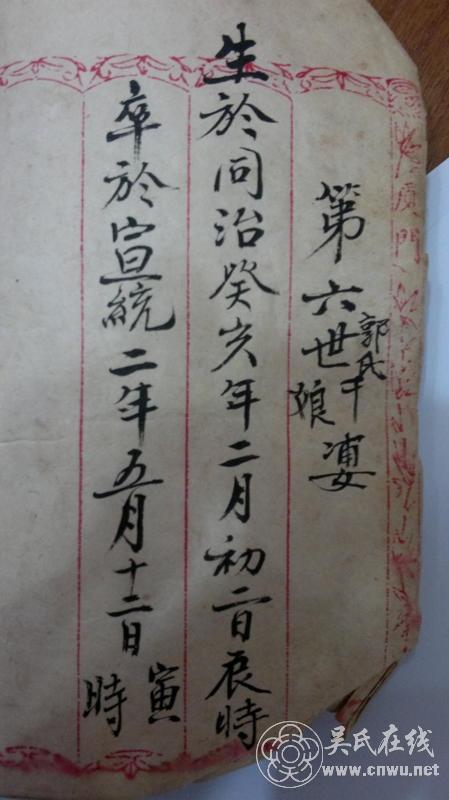 廈門
第六世郭氏娘
生於同治癸亥年二月初二日辰時
卒於宣統二年五月十二日寅時
吴氏在线
www.cnwu.net